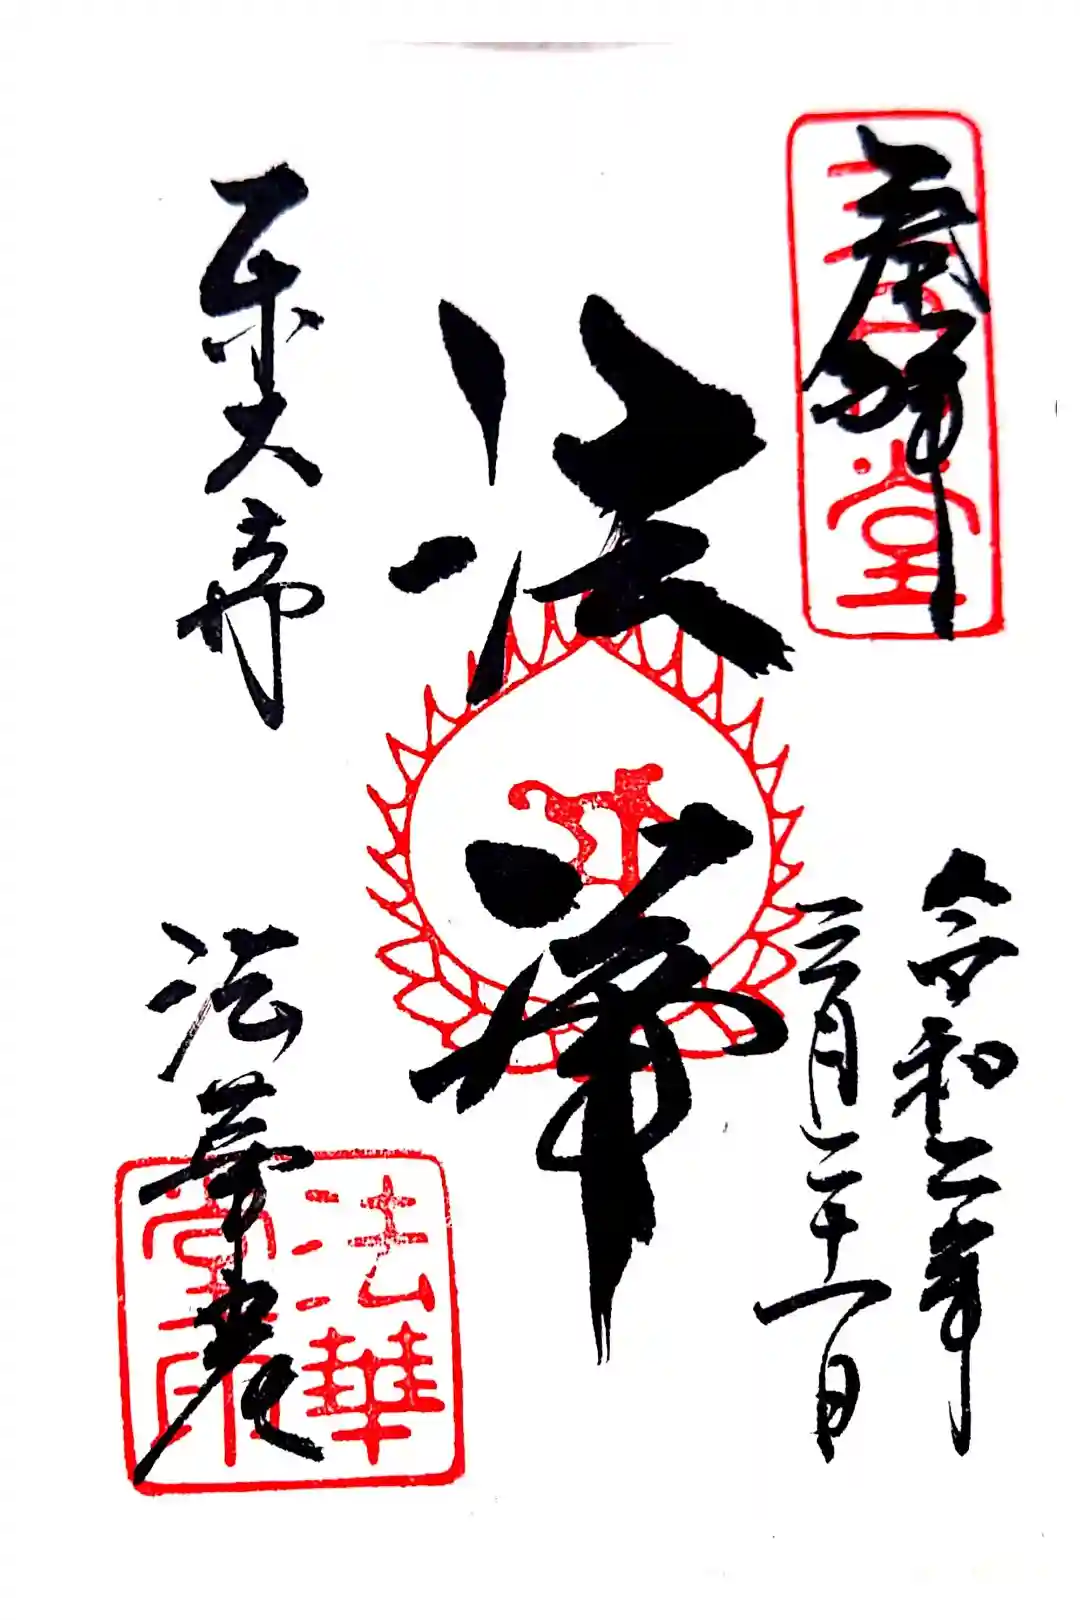 奉拝
令和二年
三月二十一日
法華
東大寺
法華堂
三月堂
法華
堂印